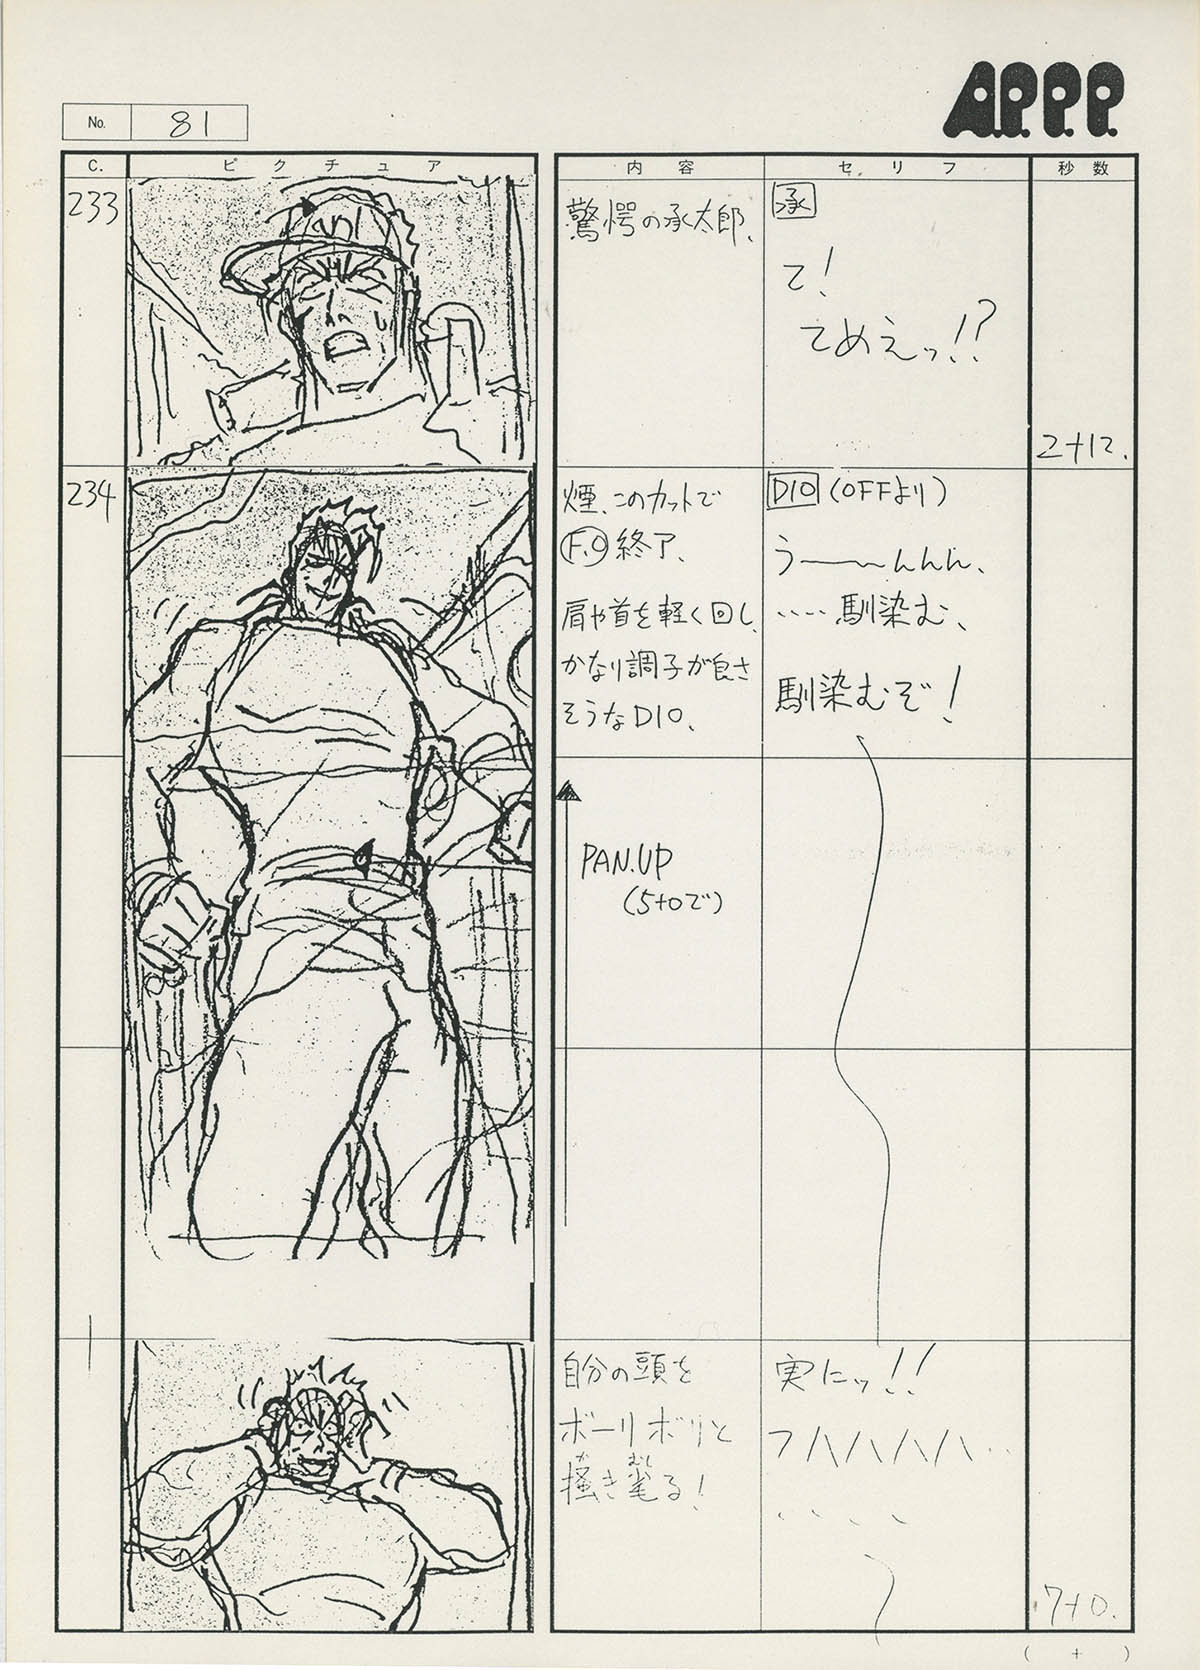 A.P.P.P.
No. 81
C. ピクチュア 内容 セリフ 秒数
233
驚愕の承太郎、
承
て!
てめえッ!!?
2+12.
234
煙、このカットで
F.O 終了、
肩や首を軽く回し、
かなり調子が良さ
そうなDIO、
DIO (OFFより)
う――んんん、
‥‥馴染む、
馴染むぞ!
PAN.UP
(5+0で)
自分の頭を
ボーリボリと
掻き毟る!
か むし
実にッ!!
フハハハハ‥
7+0.
( + )